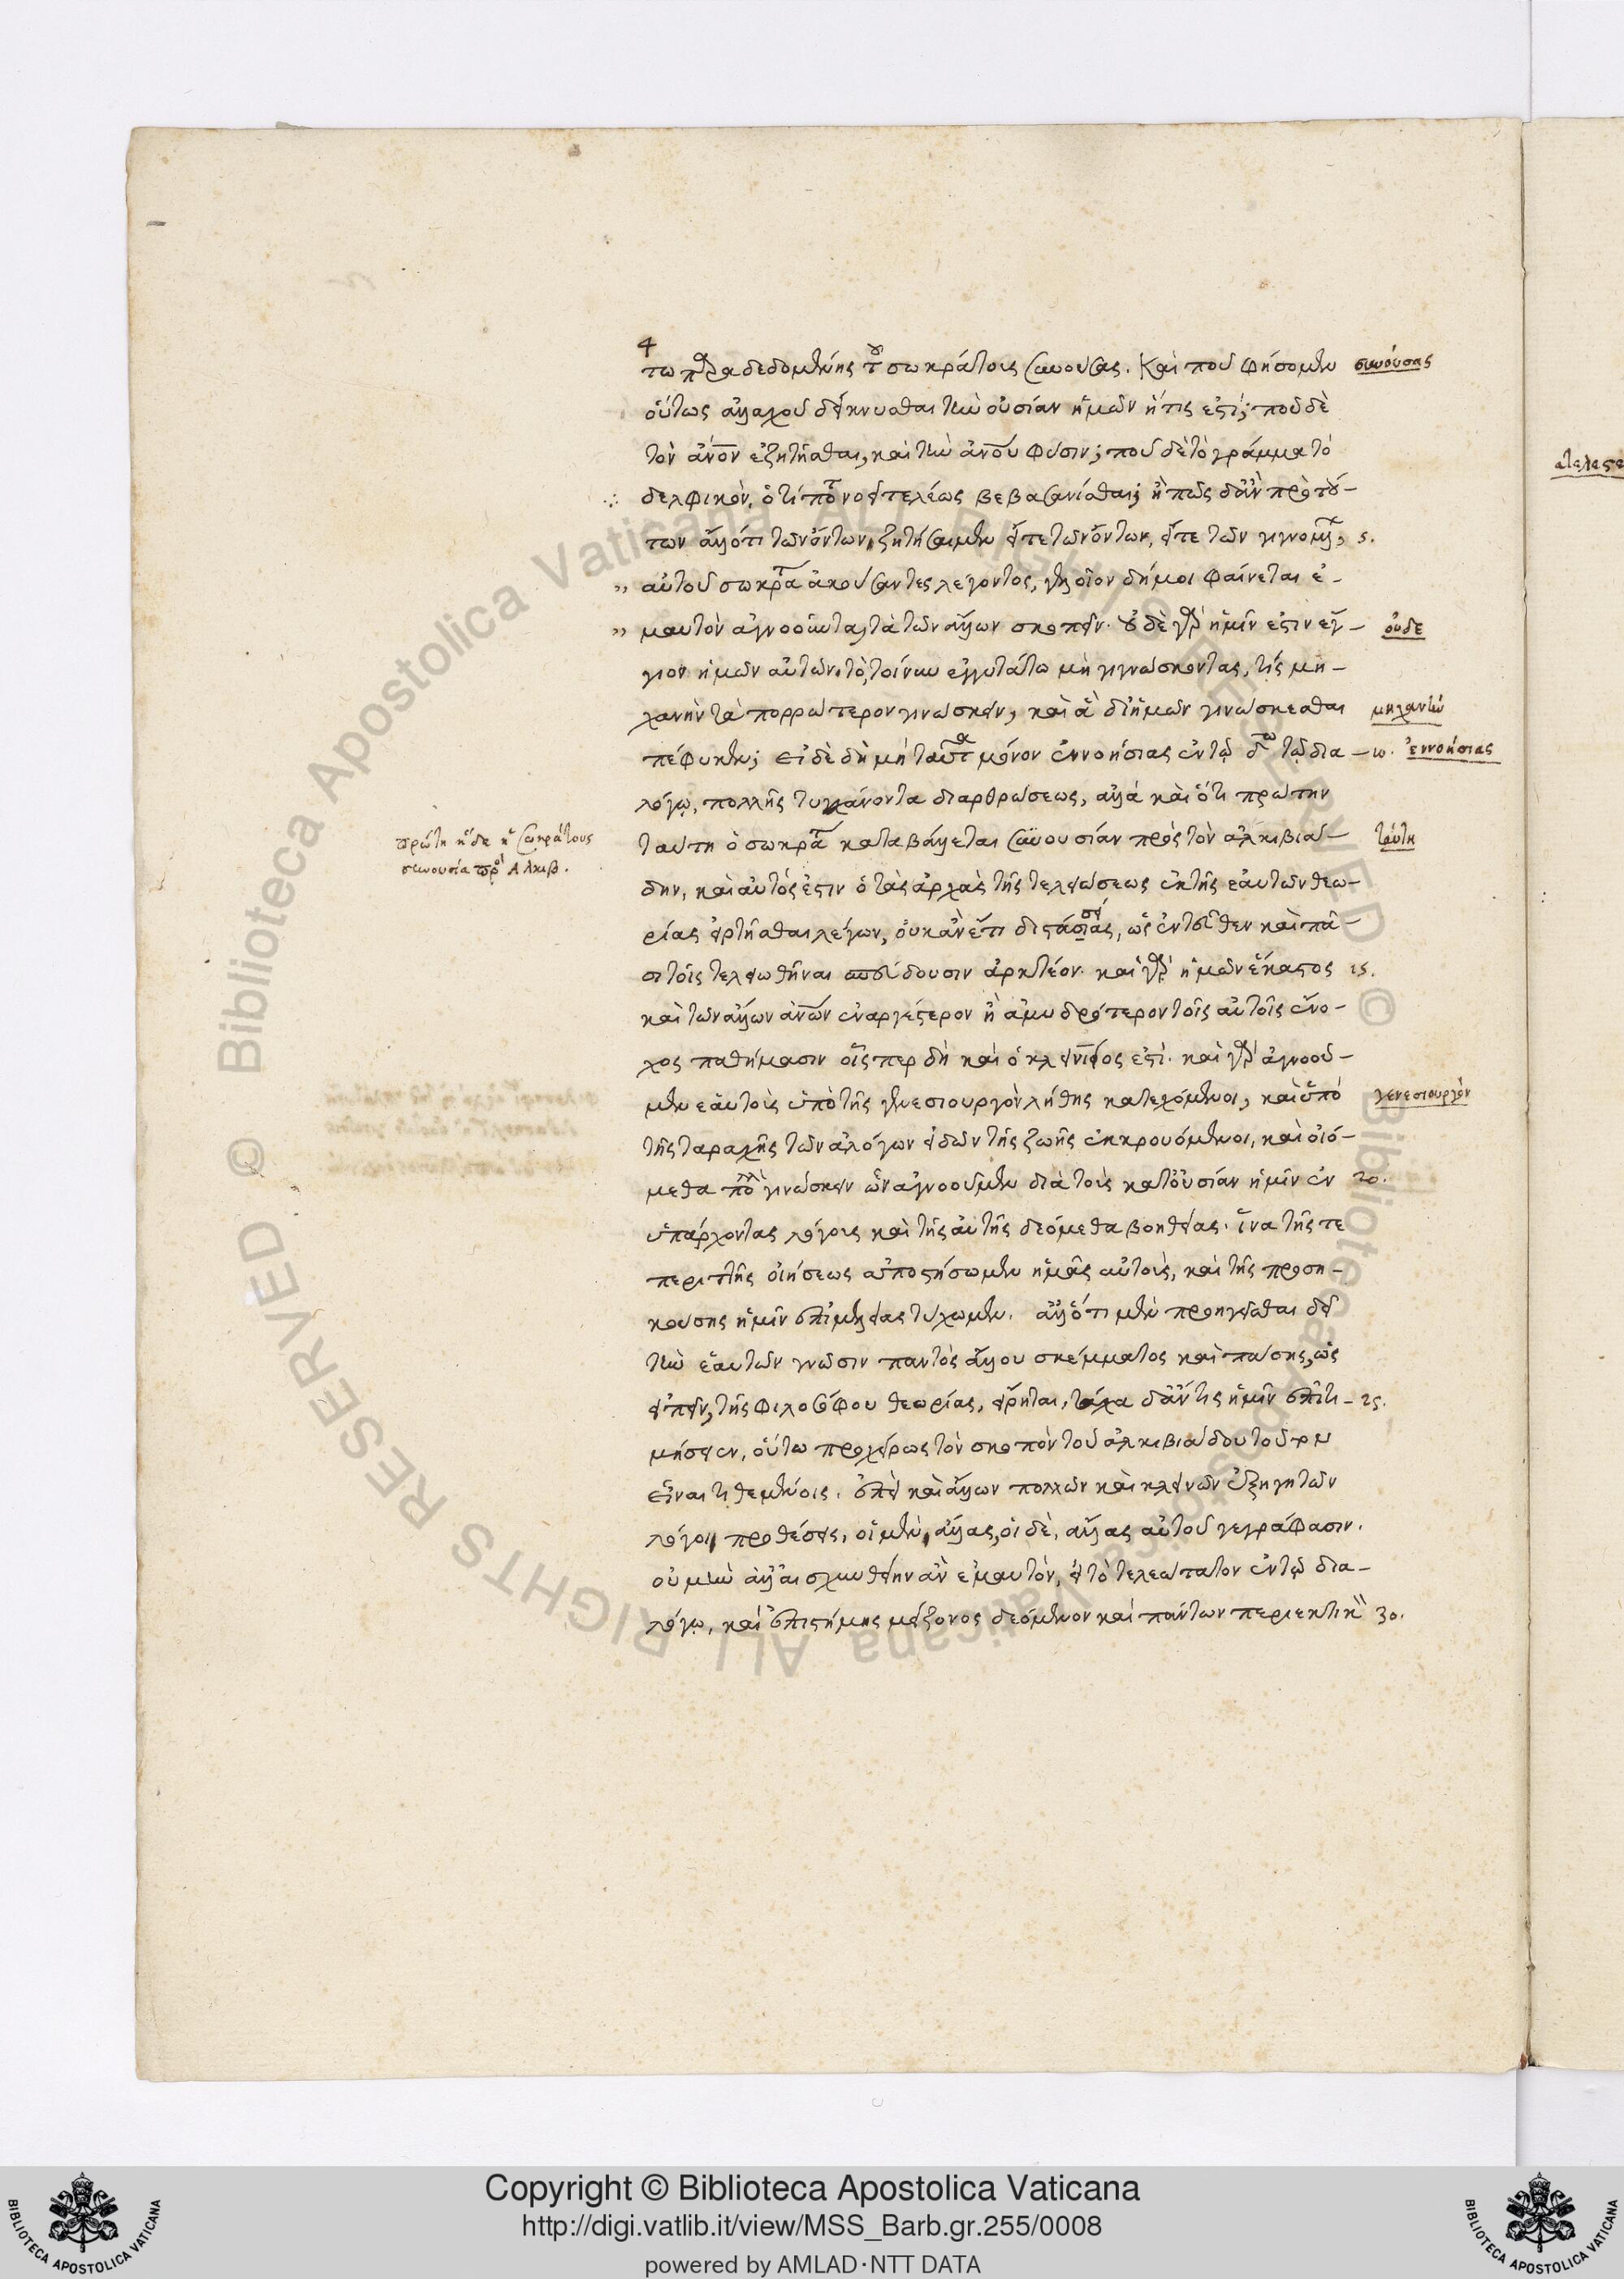 4
τω παραδεδομένης τοῦ σωκράτους συνούσας. Καὶ ποῦ φήσομεν συνούσας
οὕτως ἀλλαχοῦ δείκνυσθαι τὴν οὐσίαν ἡμῶν ἥτις ἐστί; ποῦ δὲ
τὸν ἄνον ἐζητῆσθαι, καὶ τὴν ἀνου φύσιν; ποῦ δὲ τὸ γράμμα τὸ
δελφικὸν, ὅτί ποτε νοεῖ τελέως βεβασανίσθαι; ἢ πῶς δ' ἂν πρὸ τού-
των ἄλλό τι τῶν ὄντων ζητήσαιμεν εἴτε τῶν ὄντων, εἴτε τῶν γιγνομένων, 5.
" αὐτοῦ σωκράτους ἀκούσαντες λέγοντος, γελοῖον δή μοι φαίνεται ἐ-
" μαυτὸν ἀγνοοῦντα, τὰ τῶν ἄλλων σκοπεῖν. οὐδὲ γὰρ ἡμῖν ἐστιν ἐγ- οὐδε
γιον ἡμῶν αὐτῶν. τὸ τοίνυν ἐγγυτάτω μὴ γιγνώσκοντας, τίς μη-
χανὴν τὰ πορρωτερον γινώσκειν, καὶ ἃ δι' ἡμῶν γινώσκεσθαι μηχανὴν
πέφυκεν; εἰ δὲ δὴ μὴ ταῦτα μόνον ἐννοήσιας ἐν τῷ τῷ δια- 10. ἐννοήσιας
λόγῳ, πολλῆς τυγχάνοντα διαρθρώσεως, ἀλλὰ καὶ ὅτι πρωτην
πρώτη ἥδε ἡ Σωκράτους
συνουσία πρὸς Ἀλκιβ.
ταύτη ὁ σωκράτης καταβάλλεται συνουσίαν πρὸς τὸν ἀλκιβιά- ταύτη
δην, καὶ αὐτός ἐστιν ὁ τὰς ἀρχὰς τῆς τελειώσεως ἐκ τῆς ἑαυτῶν θεω-
ρίας ἠρτῆσθαι λέγων, οὐκ ἂν ἔτι διστάσιας, ὡς ἐντεῦθεν καὶ πᾶ-
σι τοῖς τελειωθῆναι σπεύδουσιν ἀρκτέον. καὶ γὰρ ἡμῶν ἕκαστος 15.
καὶ τῶν ἄλλων ἀνων ἐναργέστερον ἢ ἀμυδρότερον τοῖς αὐτοῖς ἔνο-
χος παθήμασιν οἷσπερ δὴ καὶ ὁ κλεινίειος ἐστί. καὶ γὰρ ἀγνοοῦ-
μεν ἑαυτοὺς ὑπὸ τῆς γενεσιουργὸν λήθης κατεχόμενοι, καὶ ὑπὸ γενεσιουργὸν
τῆς ταραχῆς τῶν ἀλόγων εἰδῶν τῆς ζωῆς ἐκκρουόμενοι, καὶ οἰό-
μεθα πολλὰ γινώσκειν ὧν ἀγνοοῦμεν διὰ τοὺς κατ' οὐσίαν ἡμῖν ἐν 20.
ὑπάρχοντας λόγους καὶ τῆς αὐτῆς δεόμεθα βοηθείας. ἵνα τῆς τε
περιττῆς οἰήσεως ἀποστήσωμεν ἡμᾶς αὐτοὺς, καὶ τῆς προση-
κούσης ἡμῖν ἐπιμελείας τύχωμεν. ἀλλ' ὅτι μὲν προηγεῖσθαι δεῖ
τὴν ἑαυτῶν γνῶσιν παντὸς ἄλλου σκέμματος καὶ πάσης, ὡς
εἰπεῖν, τῆς φιλοσόφου θεωρίας, εἴρηται, τάχα δ' ἄν τις ἡμῖν ἐπιτι- 25.
μήσειεν, οὕτω προχείρως τὸν σκοπὸν τοῦ ἀλκιβιάδου τουτονὶ
εἶναι τιθεμένοις. ἐπεὶ καὶ ἄλλων πολλῶν καὶ κλεινῶν ἐξηγητῶν
λόγοι, προθέσεις, οἱ μὲν, ἄλλας, οἱ δὲ, ἄλλας αὐτοῦ γεγράφασιν.
οὐ μὴν ἀλλ' αἰσχυνθείην ἂν ἐμαυτὸν, εἰ τὸ τελεώτατον ἐν τῷ δια-
λόγῳ, καὶ ἐπιστήμης μείζονος δεόμενον καὶ πάντων περιεκτικὸν 30.
Copyright © Biblioteca Apostolica Vaticana
http://digi.vatlib.it/view/MSS_Barb.gr.255/0008
powered by AMLAD·NTT DATA
BIBLIOTECA APOSTOLICA VATICANA
BIBLIOTECA APOSTOLICA VATICANA
© Biblioteca Apostolica Vaticana ALL RIGHTS RESERVED © Biblioteca Apostolica Vaticana ALL RIGHTS RESERVED